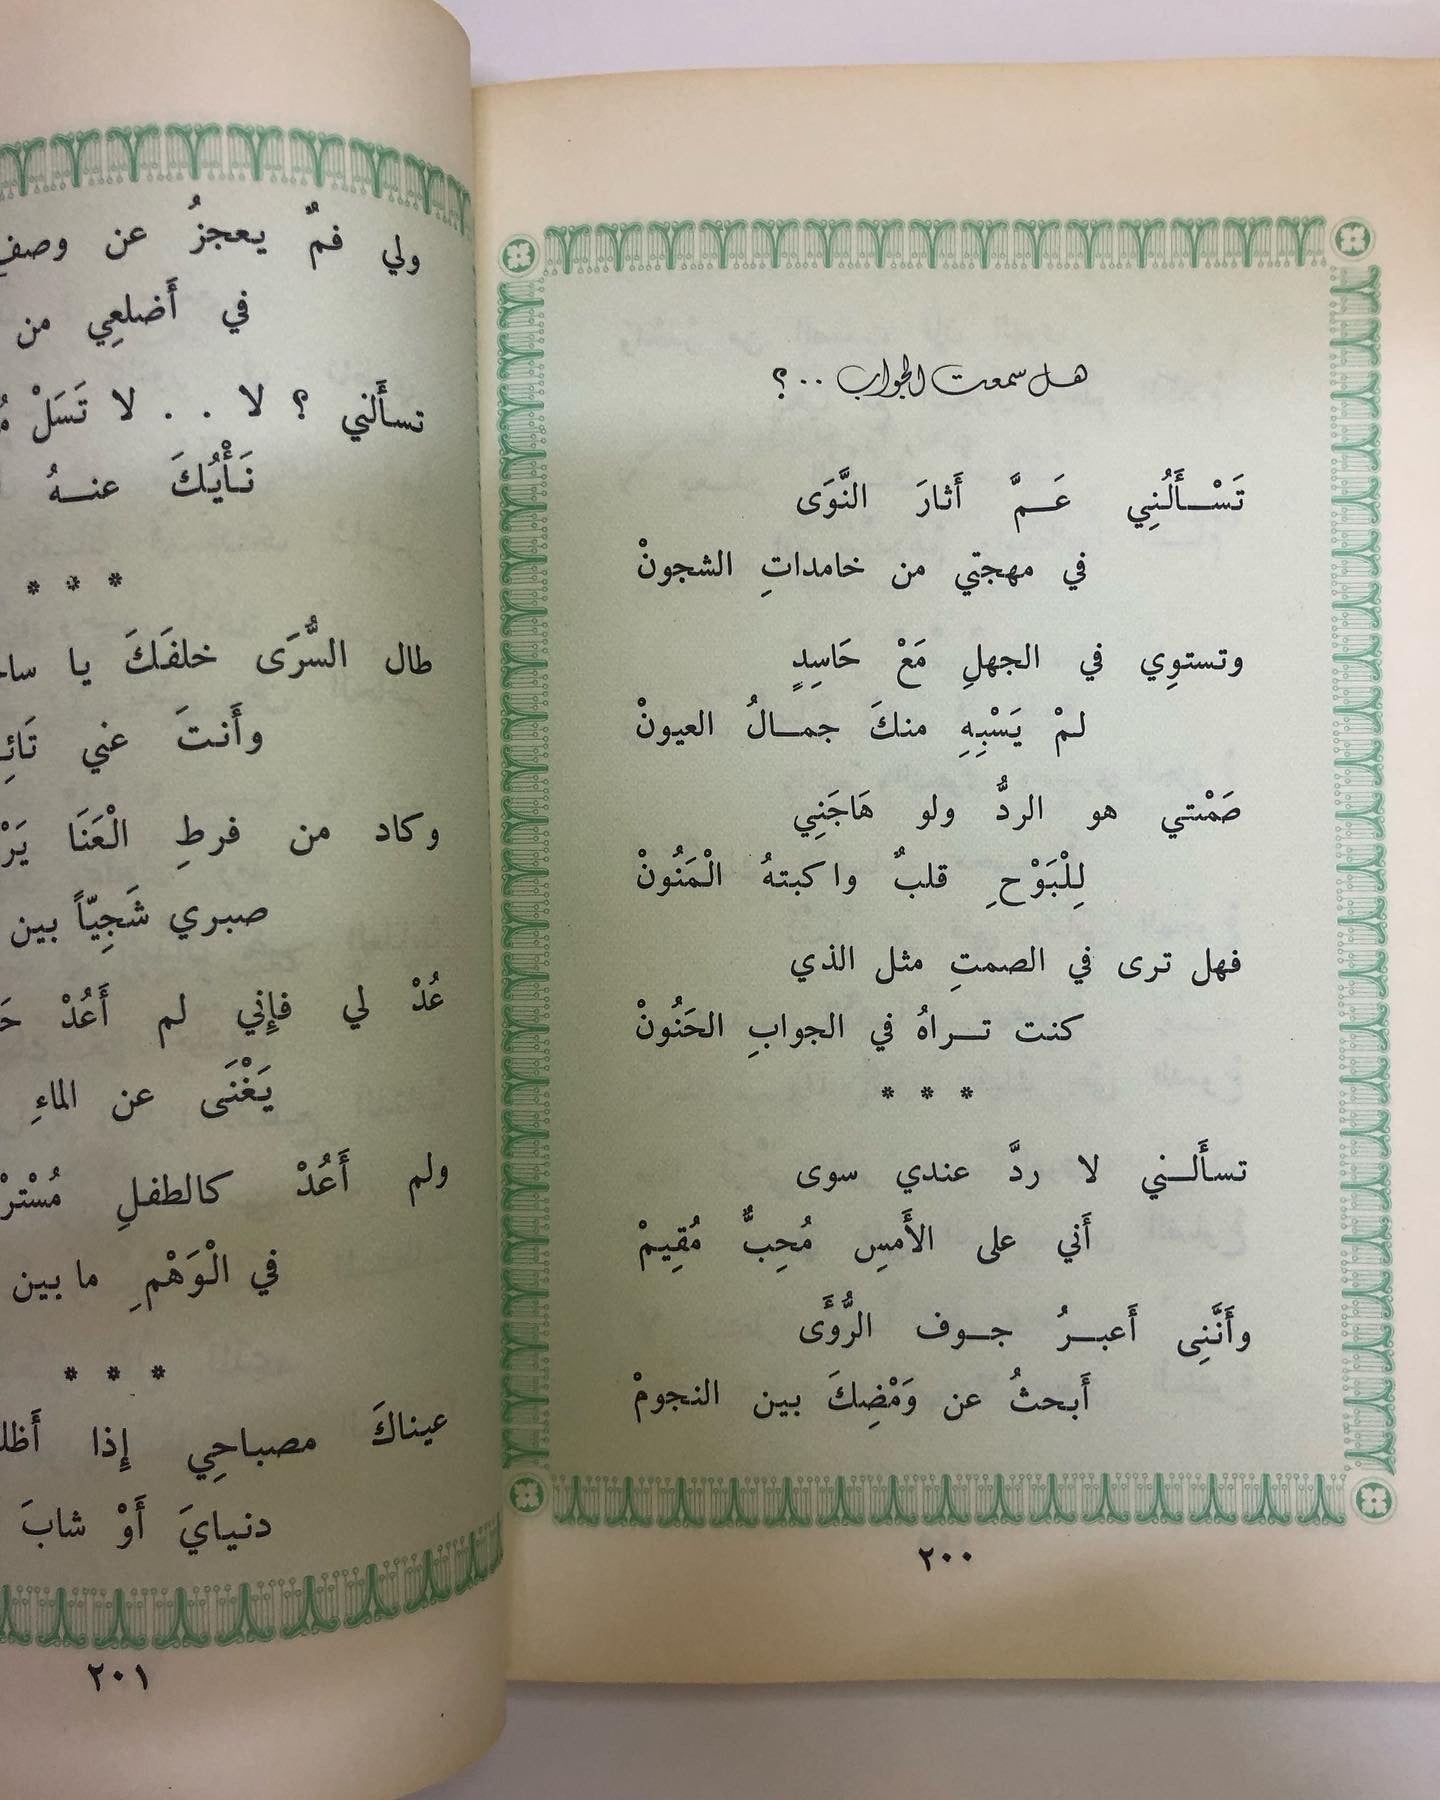 هل سمعت الجواب ..؟
تَسْـأَلُنِي عَـمَّ أَثارَ النَّوَى
في مهجتي من خامداتِ الشجونْ
وتستوِي في الجهلِ مَعْ حَاسِدٍ
لمْ يَسْبِهِ منكَ جمـالُ العيونْ
صَمْتي هو الردُّ ولو هَاجَنِي
لِلْبَوْحِ قلبٌ واكبتهُ الْمَنُونْ
فهل ترى في الصمتِ مثل الذي
كنت تـراهُ في الجوابِ الحَنُونْ
* * *
تسأَلـني لا ردَّ عندي سوى
أَني على الأَمسِ مُحِبٌّ مُقِيمْ
وأَنَّنِى أَعبـرُ جـوف الرُّؤَى
أَبحثُ عن وَمْضِكَ بين النجومْ
٢٠٠
ولي فمٌ يعجزُ عن وصف
في أَضلعِي من
تسأَلني ؟ لا . . لا تَسَلْ
نَـأْيُكَ عنـهُ
* * *
طال السُّرَى خلفَكَ يا
وأَنتَ عني
وكاد من فرطِ الْعَنَا
صبري شَجِيّاً بين
عُدْ لي فإِني لم أَعُدْ
يَغْنَى عن الماءِ
ولم أَعُدْ كالطفلِ
في الْوَهْمِ ما بين
* * *
عيناكَ مصباحِي إِذا
دنيايَ أَوْ شابَ
٢٠١